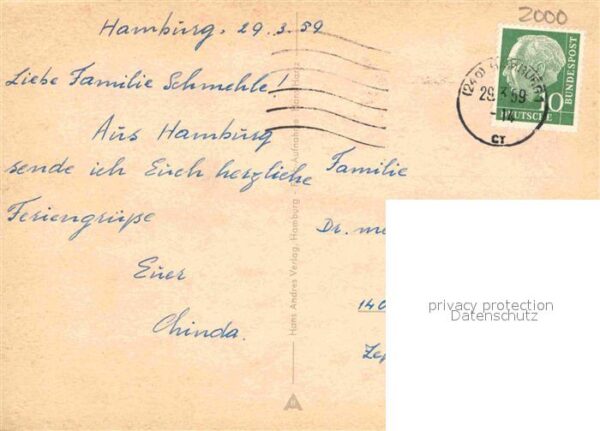 2000
Hamburg, 29.3.59
Liebe Familie Schmehle!
Aus Hamburg
sende ich Euch herzliche
Feriengrüße
Euer
Chinda.
Familie
Dr. me
140
Zep
DEUTSCHE
BUNDESPOST
10
(24a) HAMBURG
29.3.59
CT
Hans Andres Verlag, Hamburg
Aufnahme
privacy protection
Datenschutz